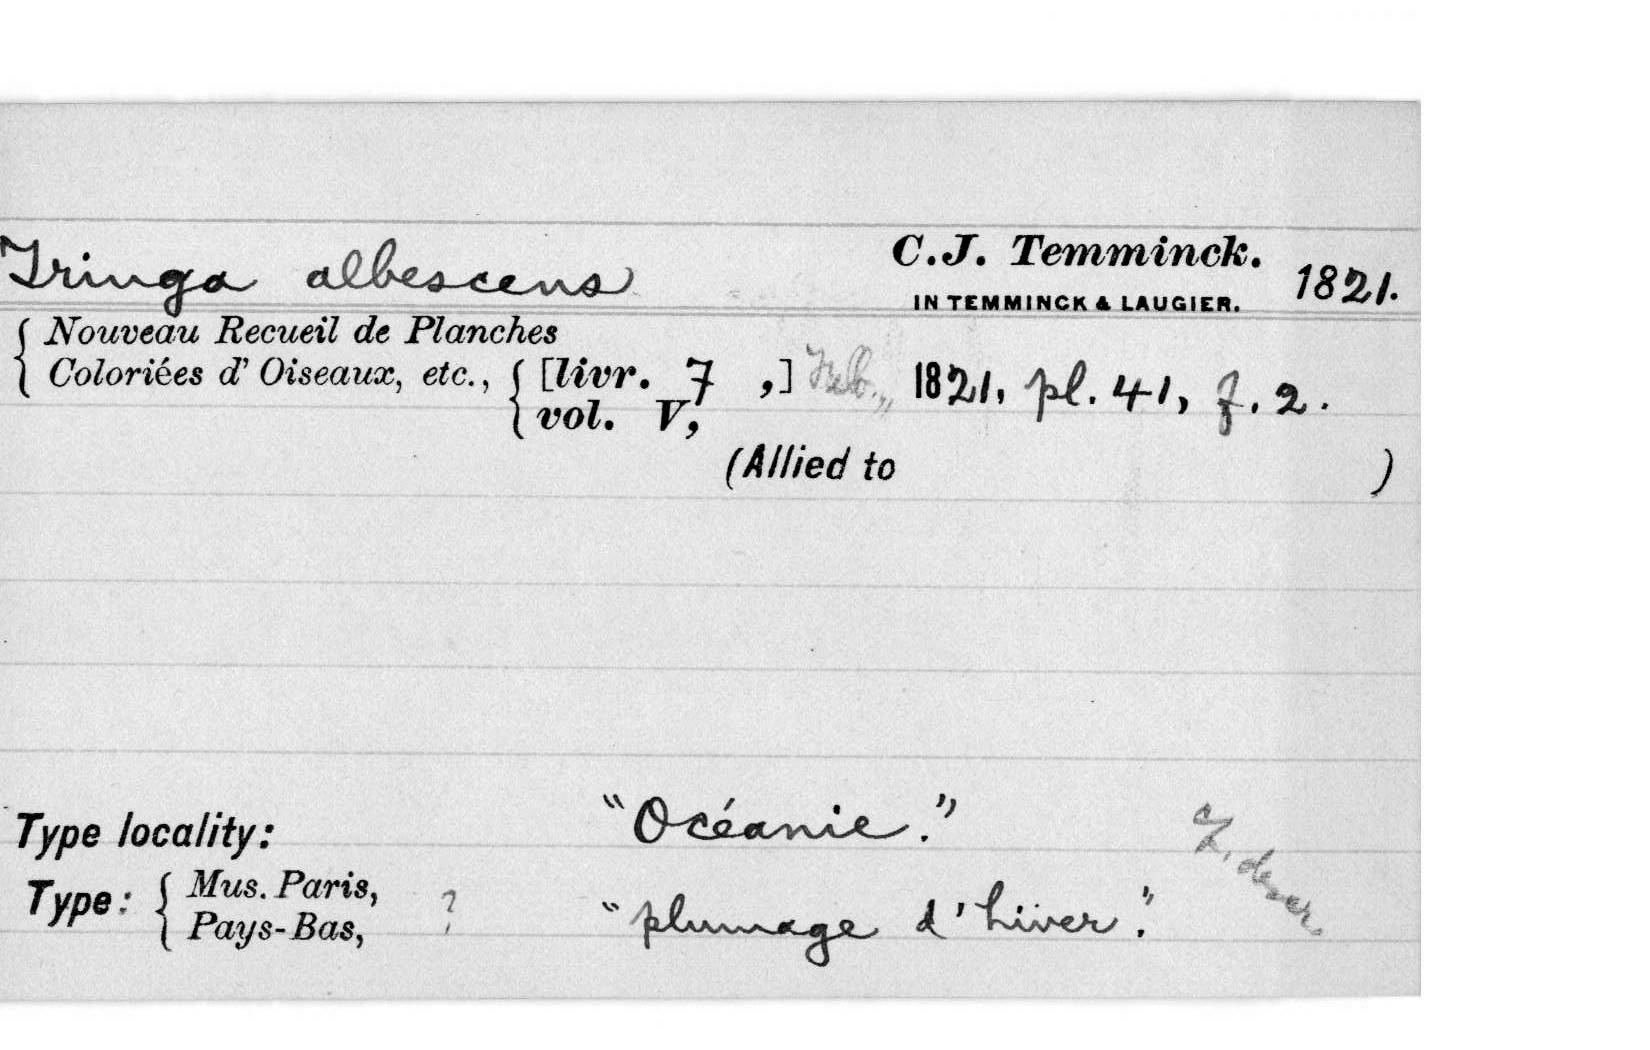 Tringa albescens C.J. Temminck. 1821.
IN TEMMINCK & LAUGIER.
{ Nouveau Recueil de Planches
Coloriées d' Oiseaux, etc., { [livr. 7 ,] Feb., 1821, pl. 41, f. 2.
vol. V,
(Allied to )
Type locality: "Océanie."
Type: { Mus. Paris, ? "plumage d'hiver."
Pays-Bas,